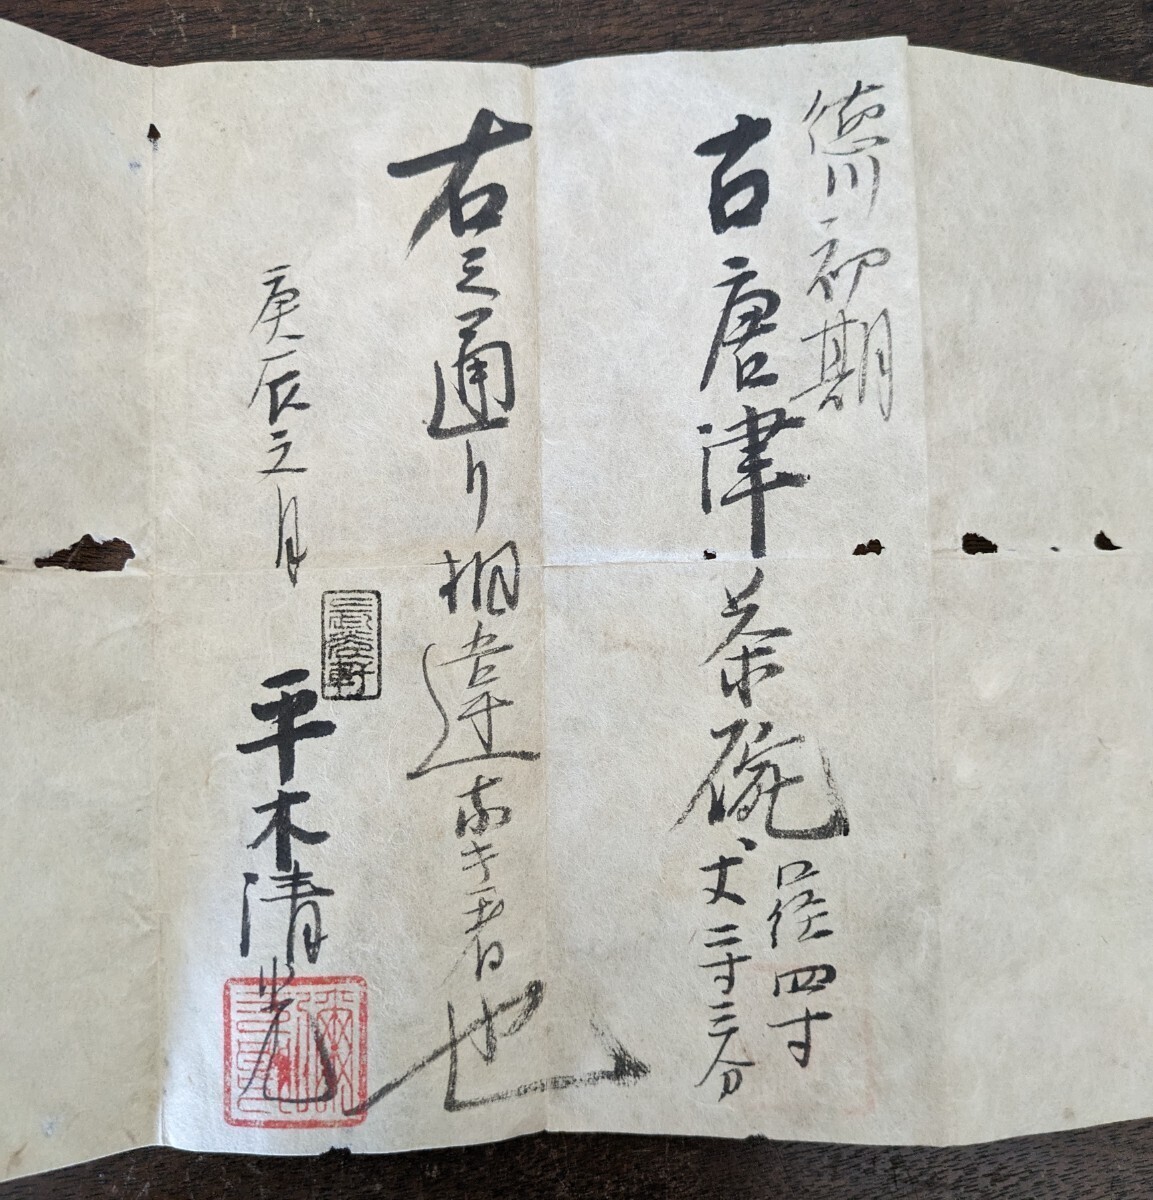 徳川初期
古唐津茶碗
口径四寸
丈二寸二分
右之通り相違無き者也
庚辰之月
平木清光